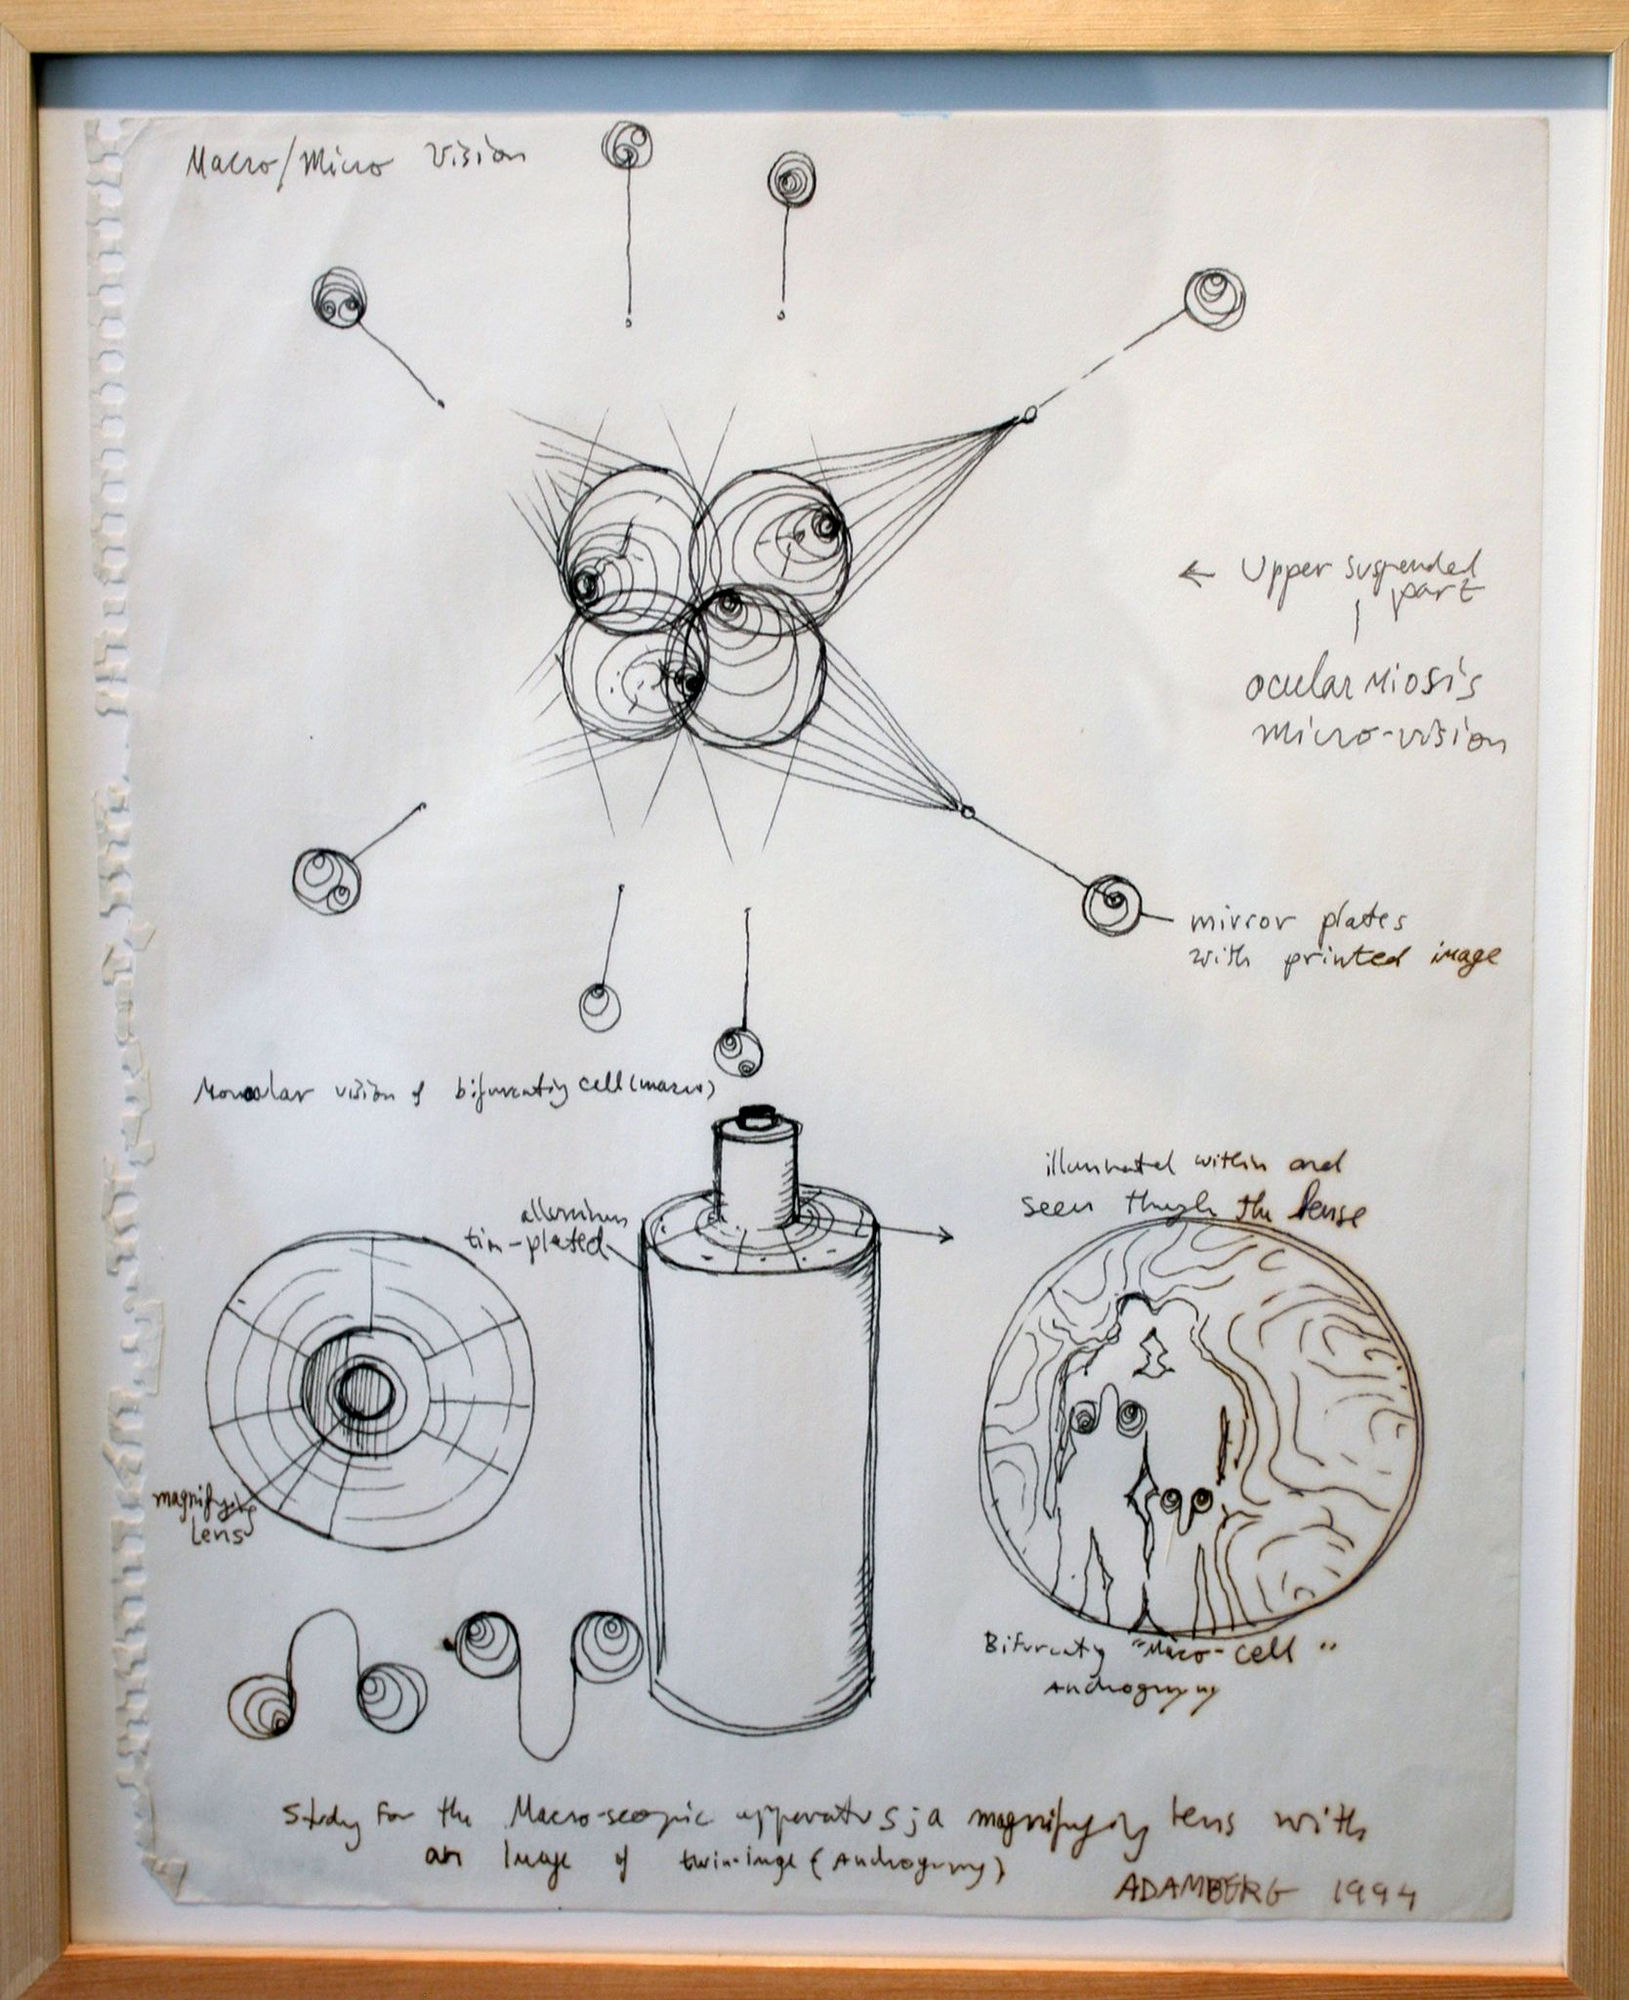 Macro/Micro Vision
← Upper suspended
part
ocular miosis
micro-vision
mirror plates
with printed image
Monocular vision of bifurcatig cell (macro)
illuminated within and
seen though the lense
alluminum
tin-plated
magnifying
lens
Bifurcaty "Macro-cell"
Androgyny
Study For the Macro-scopic apparatus; a magnifying lens with
an Image of twin-image (Androgyny)
ADAMBERG 1994